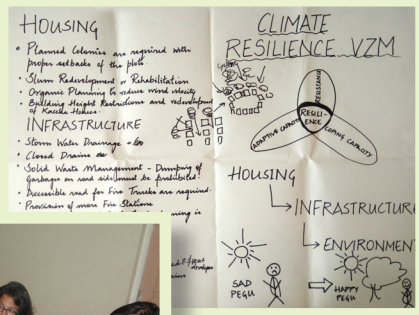 HOUSING
• Planned Colonies are required with
proper setbacks of the plots
• Slum Redevelopment or Rehabilitation
• Organic Planning to reduce wind velocity
• Building Height Restrictions and redevelopment
of Kaccha Houses.
INFRASTRUCTURE
• Storm Water Drainage
• Closed Drains
• Solid Waste Management - Dumping of
Garbage on road sides must be prohibited.
• Accessible road for Fire Trucks are required.
Provision of more Fire Stations
is
CLIMATE
RESILIENCE VZM
RESISTANCE
RESILI-
ENCE
ADAPTIVE CAPACITY
COPING CAPACITY
HOUSING
INFRASTRUCTURE
ENVIRONMENT
SAD
PEGU
HAPPY
PEGU